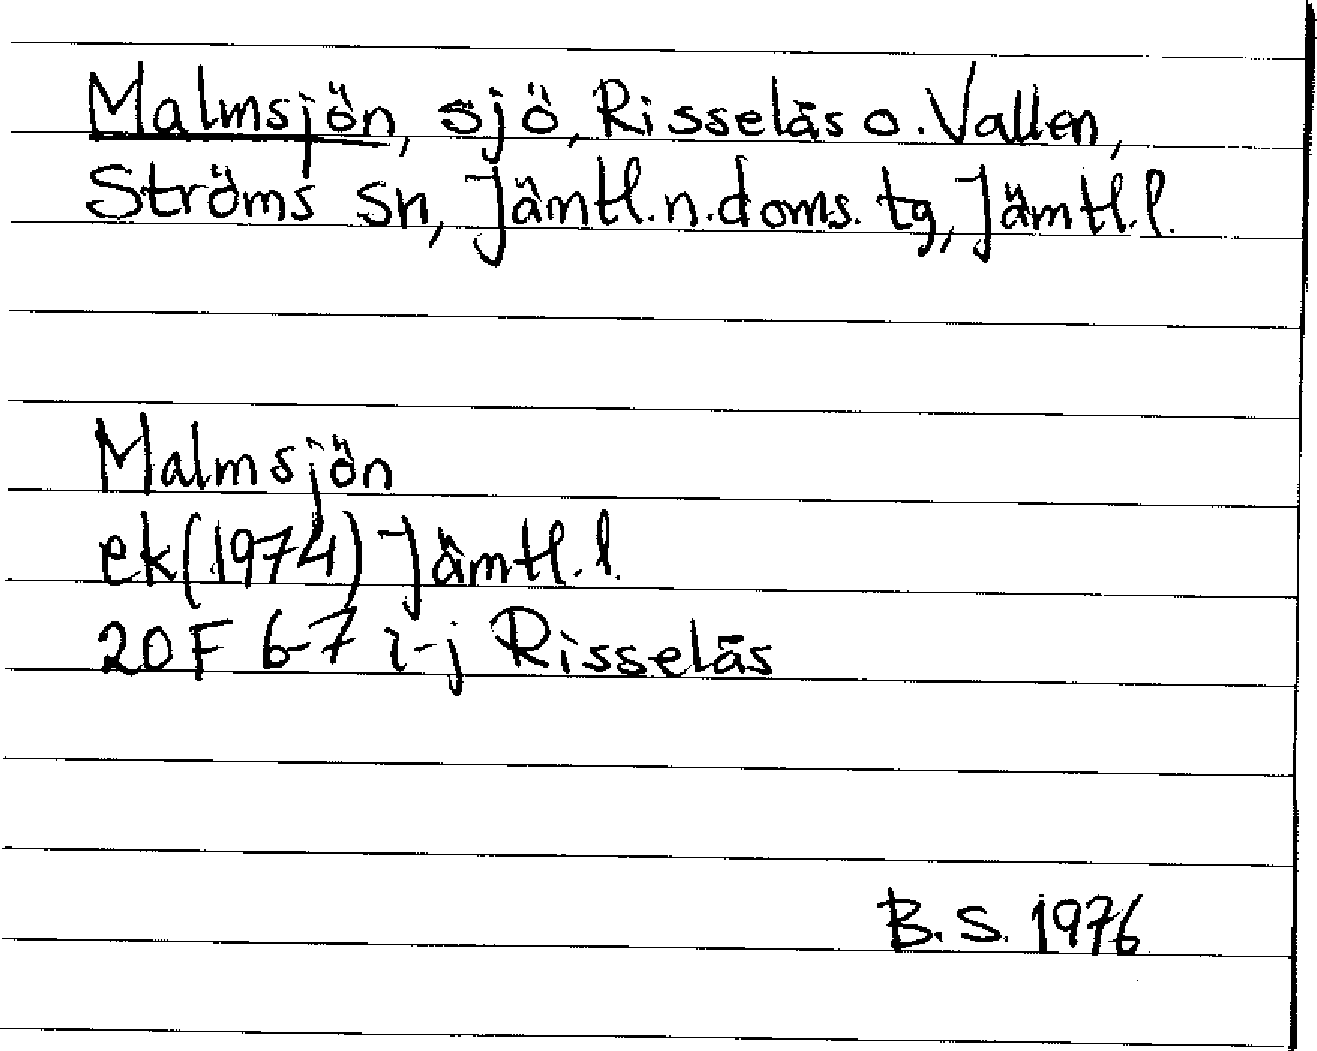 Malmsjön, sjö, Risselås o. Vallen,
Ströms sn, Jämtl. n. doms. tg, Jämtl. l.
Malmsjön
ek (1974) Jämtl. l.
20 F 6-7 i-j Risselås
B. S. 1976